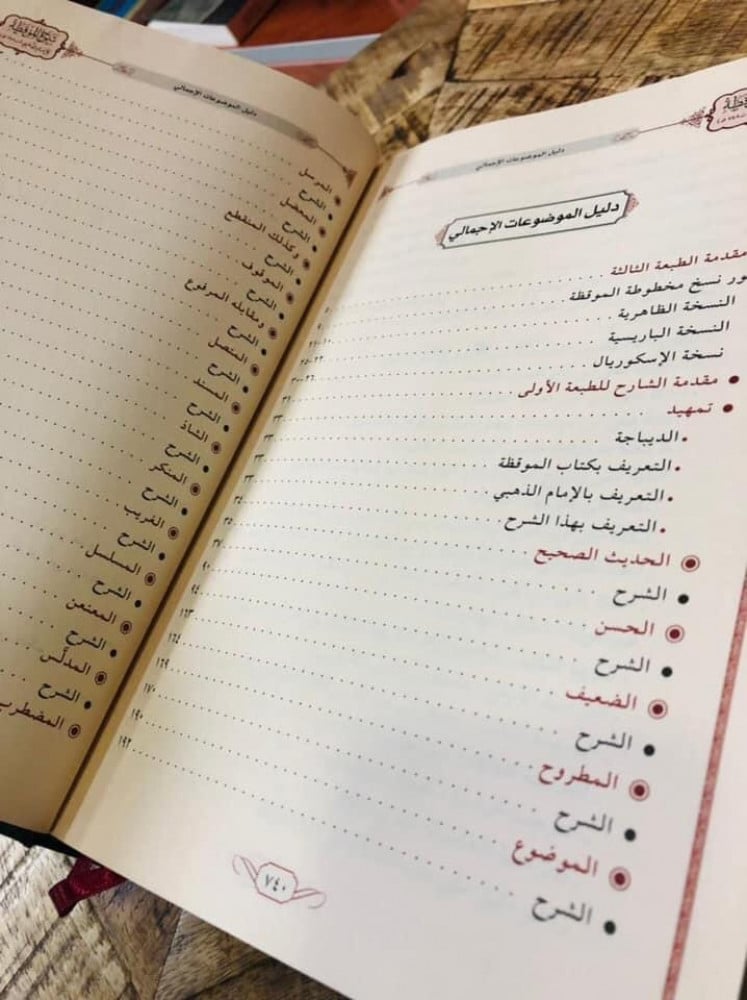 دليل الموضوعات الإجمالي
دليل الموضوعات الإجمالي
مقدمة الطبعة الثالثة ٥
ور نسخ مخطوطة الموقظة
النسخة الظاهرية
النسخة الباريسية
نسخة الإسكوريال
مقدمة الشارح للطبعة الأولى ٣١
تمهيد ٣٣
الديباجة ٣٣
التعريف بكتاب الموقظة ٣٣
التعريف بالإمام الذهبي
التعريف بهذا الشرح ٣٥
الحديث الصحيح ٣٥
الشرح ٣٧
الحسن ٩٠
الشرح ٩٤
الضعيف ١٦٣
الشرح ١٦٤
المطروح ١٦٩
الشرح ١٧٠
الموضوع ١٩٠
الشرح ١٩٢
٧٤٠
دليل الموضوعات الإجمالي
المرسل
الشرح
المعضل
الشرح
وكذلك المنقطع
الشرح
الموقوف
الشرح
ومقابله المرفوع
الشرح
المتصل
الشرح
المسند
الشرح
الشاذ
الشرح
المنكر
الشرح
الغريب
الشرح
المسلسل
الشرح
المعنعن
الشرح
المدلَّس
الشرح
المضطرب